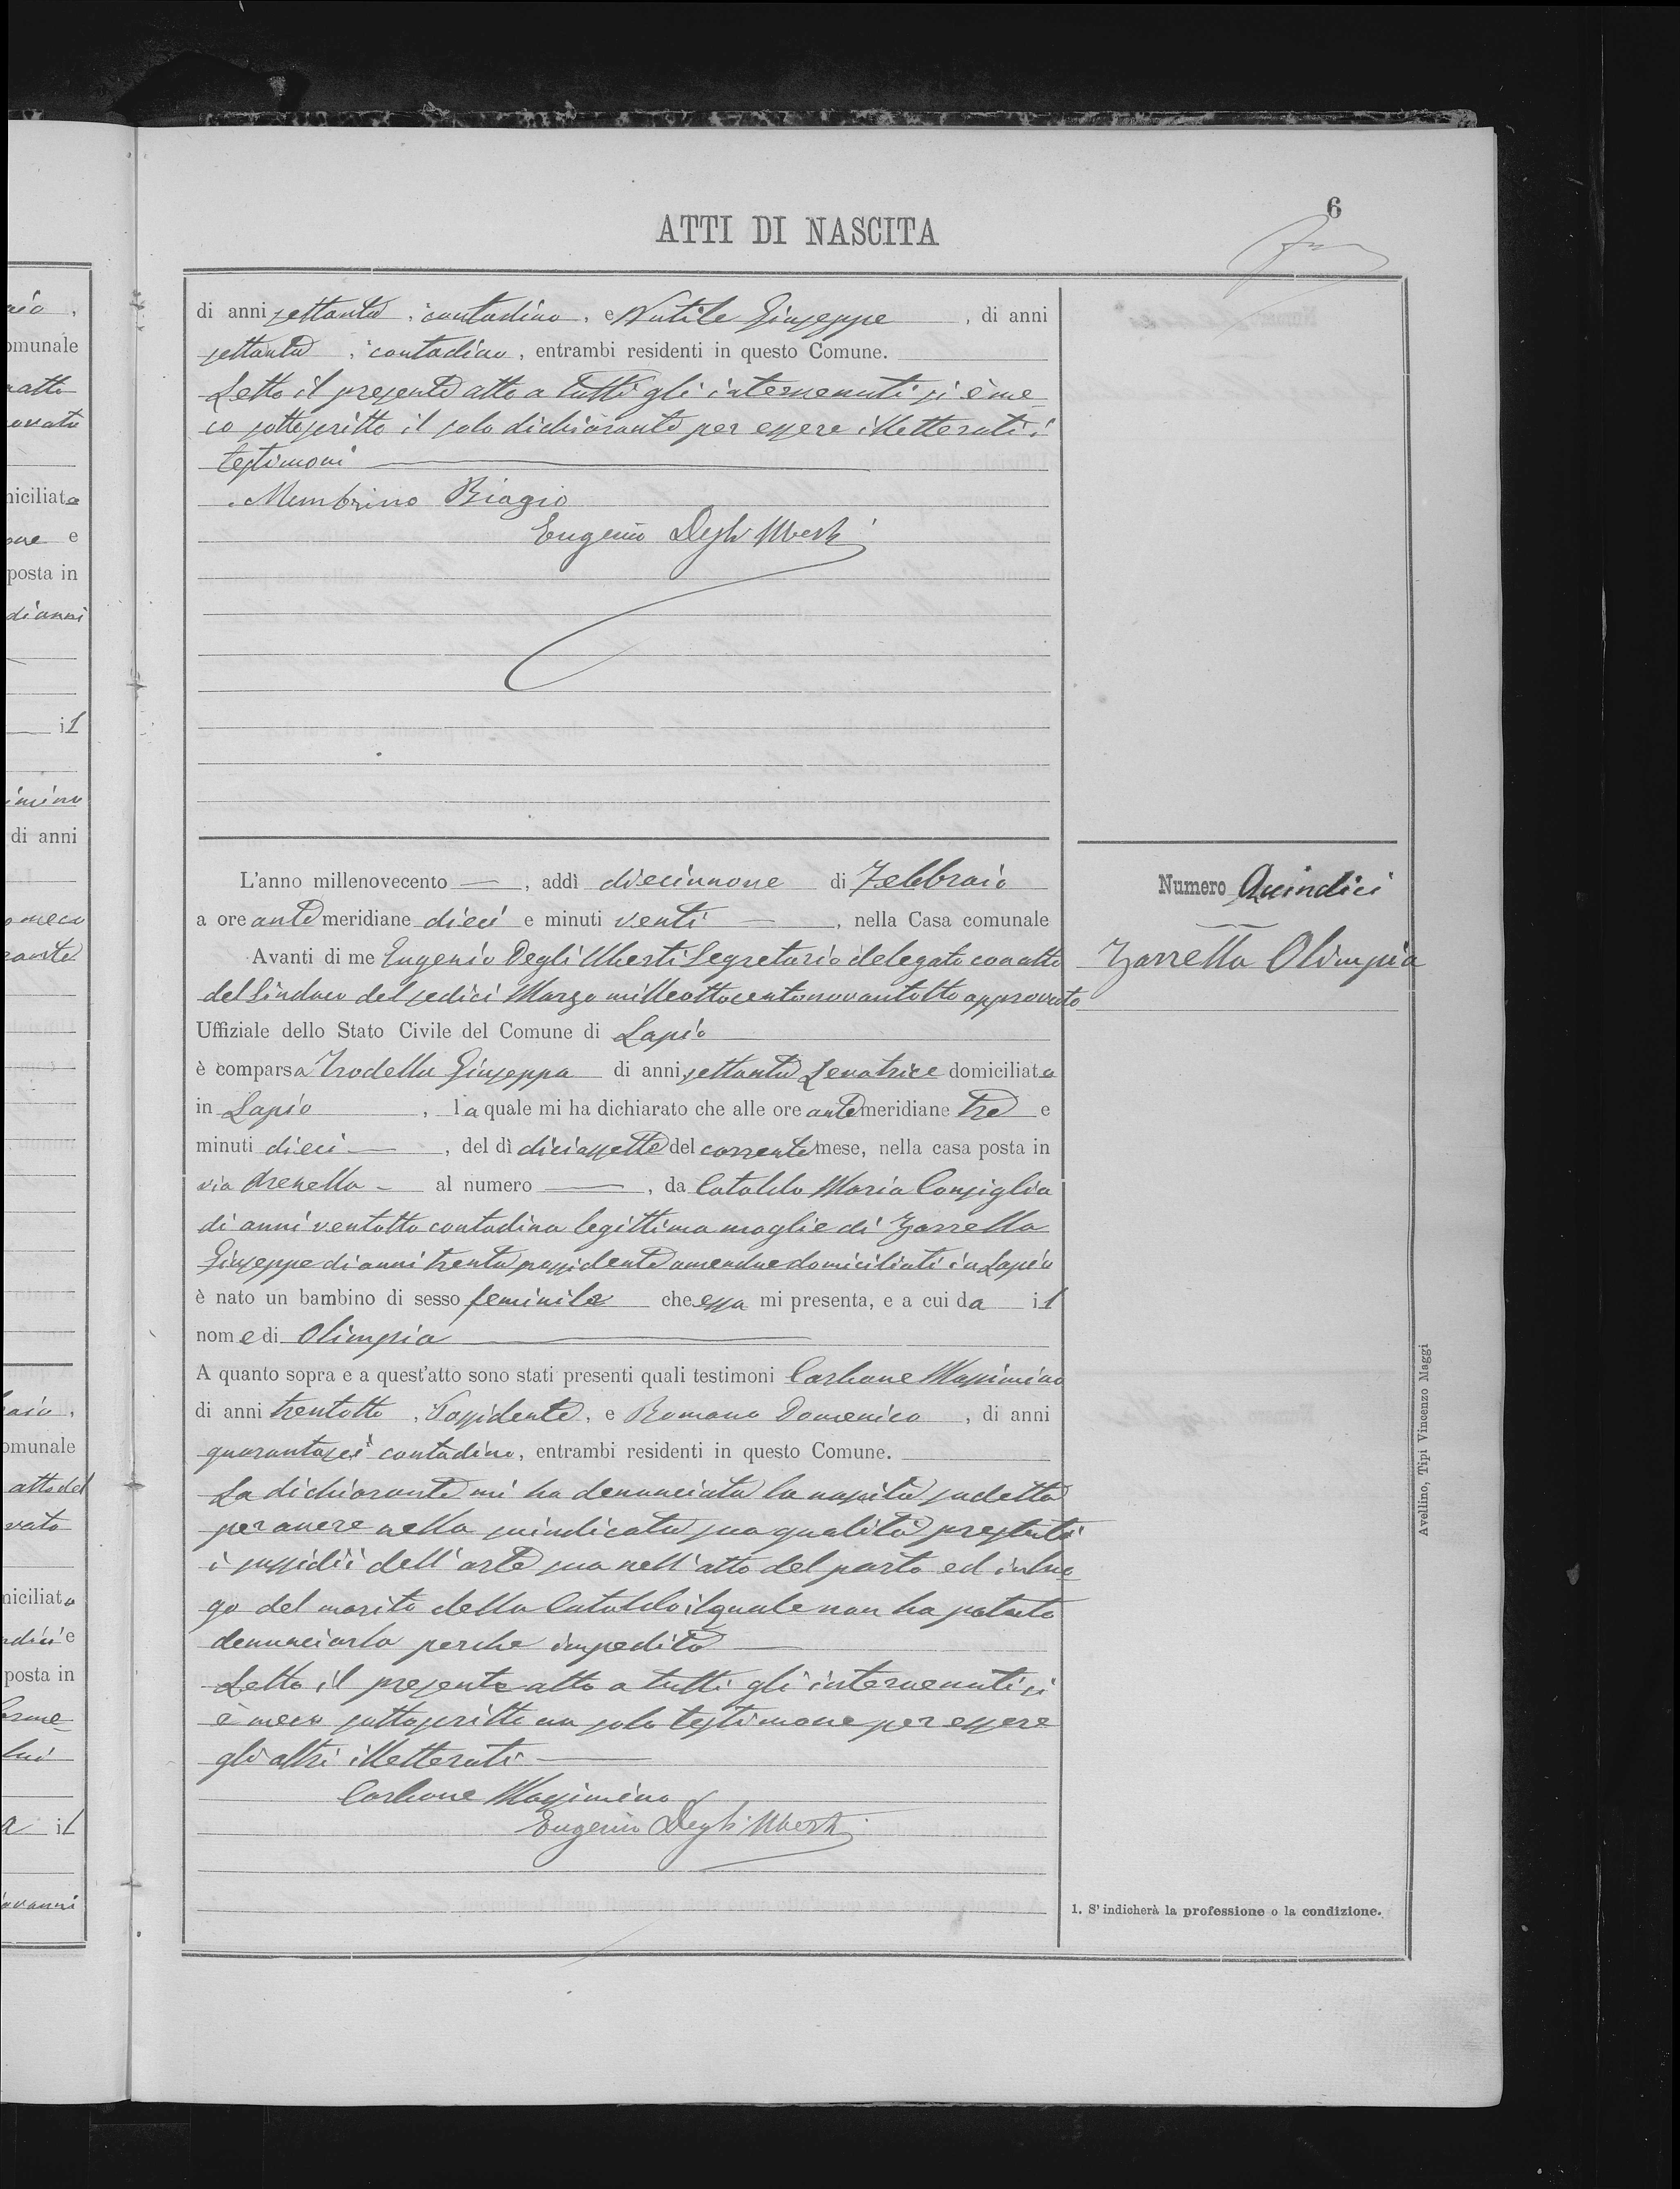 6
ATTI DI NASCITA
di anni settanta, contadino, e Nutile Giuseppe, di anni
settanta, contadino, entrambi residenti in questo Comune.
Letto il presente atto a tutti gli intervenuti si è me-
co sottoscritto il solo dichiarante per essere illetterati i
testimoni
Membrino Biagio
Eugenio Degli Uberti
L'anno millenovecento —, addì diecinnove di Febbraio
a ore antemeridiane dieci e minuti venti —, nella Casa comunale
Avanti di me Eugenio Degli Uberti Segretario delegato con atto
del Sindaco del sedici Marzo milleottocentonovantotto approvato
Uffiziale dello Stato Civile del Comune di Lapio
è comparsa Trodella Giuseppa di anni settanta Levatrice domiciliata
in Lapio, la quale mi ha dichiarato che alle ore antemeridiane tre e
minuti dieci —, del dì diciassette del corrente mese, nella casa posta in
via Arenella - al numero —, da Cataldo Maria Consiglia
di anni ventotto contadina legittima moglie di Zarrella
Giuseppe di anni trenta possidente amendue domiciliati in Lapio
è nato un bambino di sesso feminile che essa mi presenta, e a cui da il
nome di Olimpia
A quanto sopra e a quest'atto sono stati presenti quali testimoni Carbone Massimino
di anni trentotto, Possidente, e Romano Domenico, di anni
quarantasei contadino, entrambi residenti in questo Comune.
La dichiarante mi ha denunciata la nascita sudetta
per avere nella suindicata sua qualità prestati
i sussidii dell'arte sua nell'atto del parto ed in luo-
go del marito della Cataldo il quale non ha potuto
denunciarla perche impedito
Letto il presente atto a tutti gli intervenuti si
è meco sottoscritto un solo testimone per essere
gli altri illetterati
Carbone Massimino
Eugenio Degli Uberti
Numero Quindici
Zarrella Olimpia
1. S'indicherà la professione o la condizione.
Avellino, Tipi Vincenzo Maggi